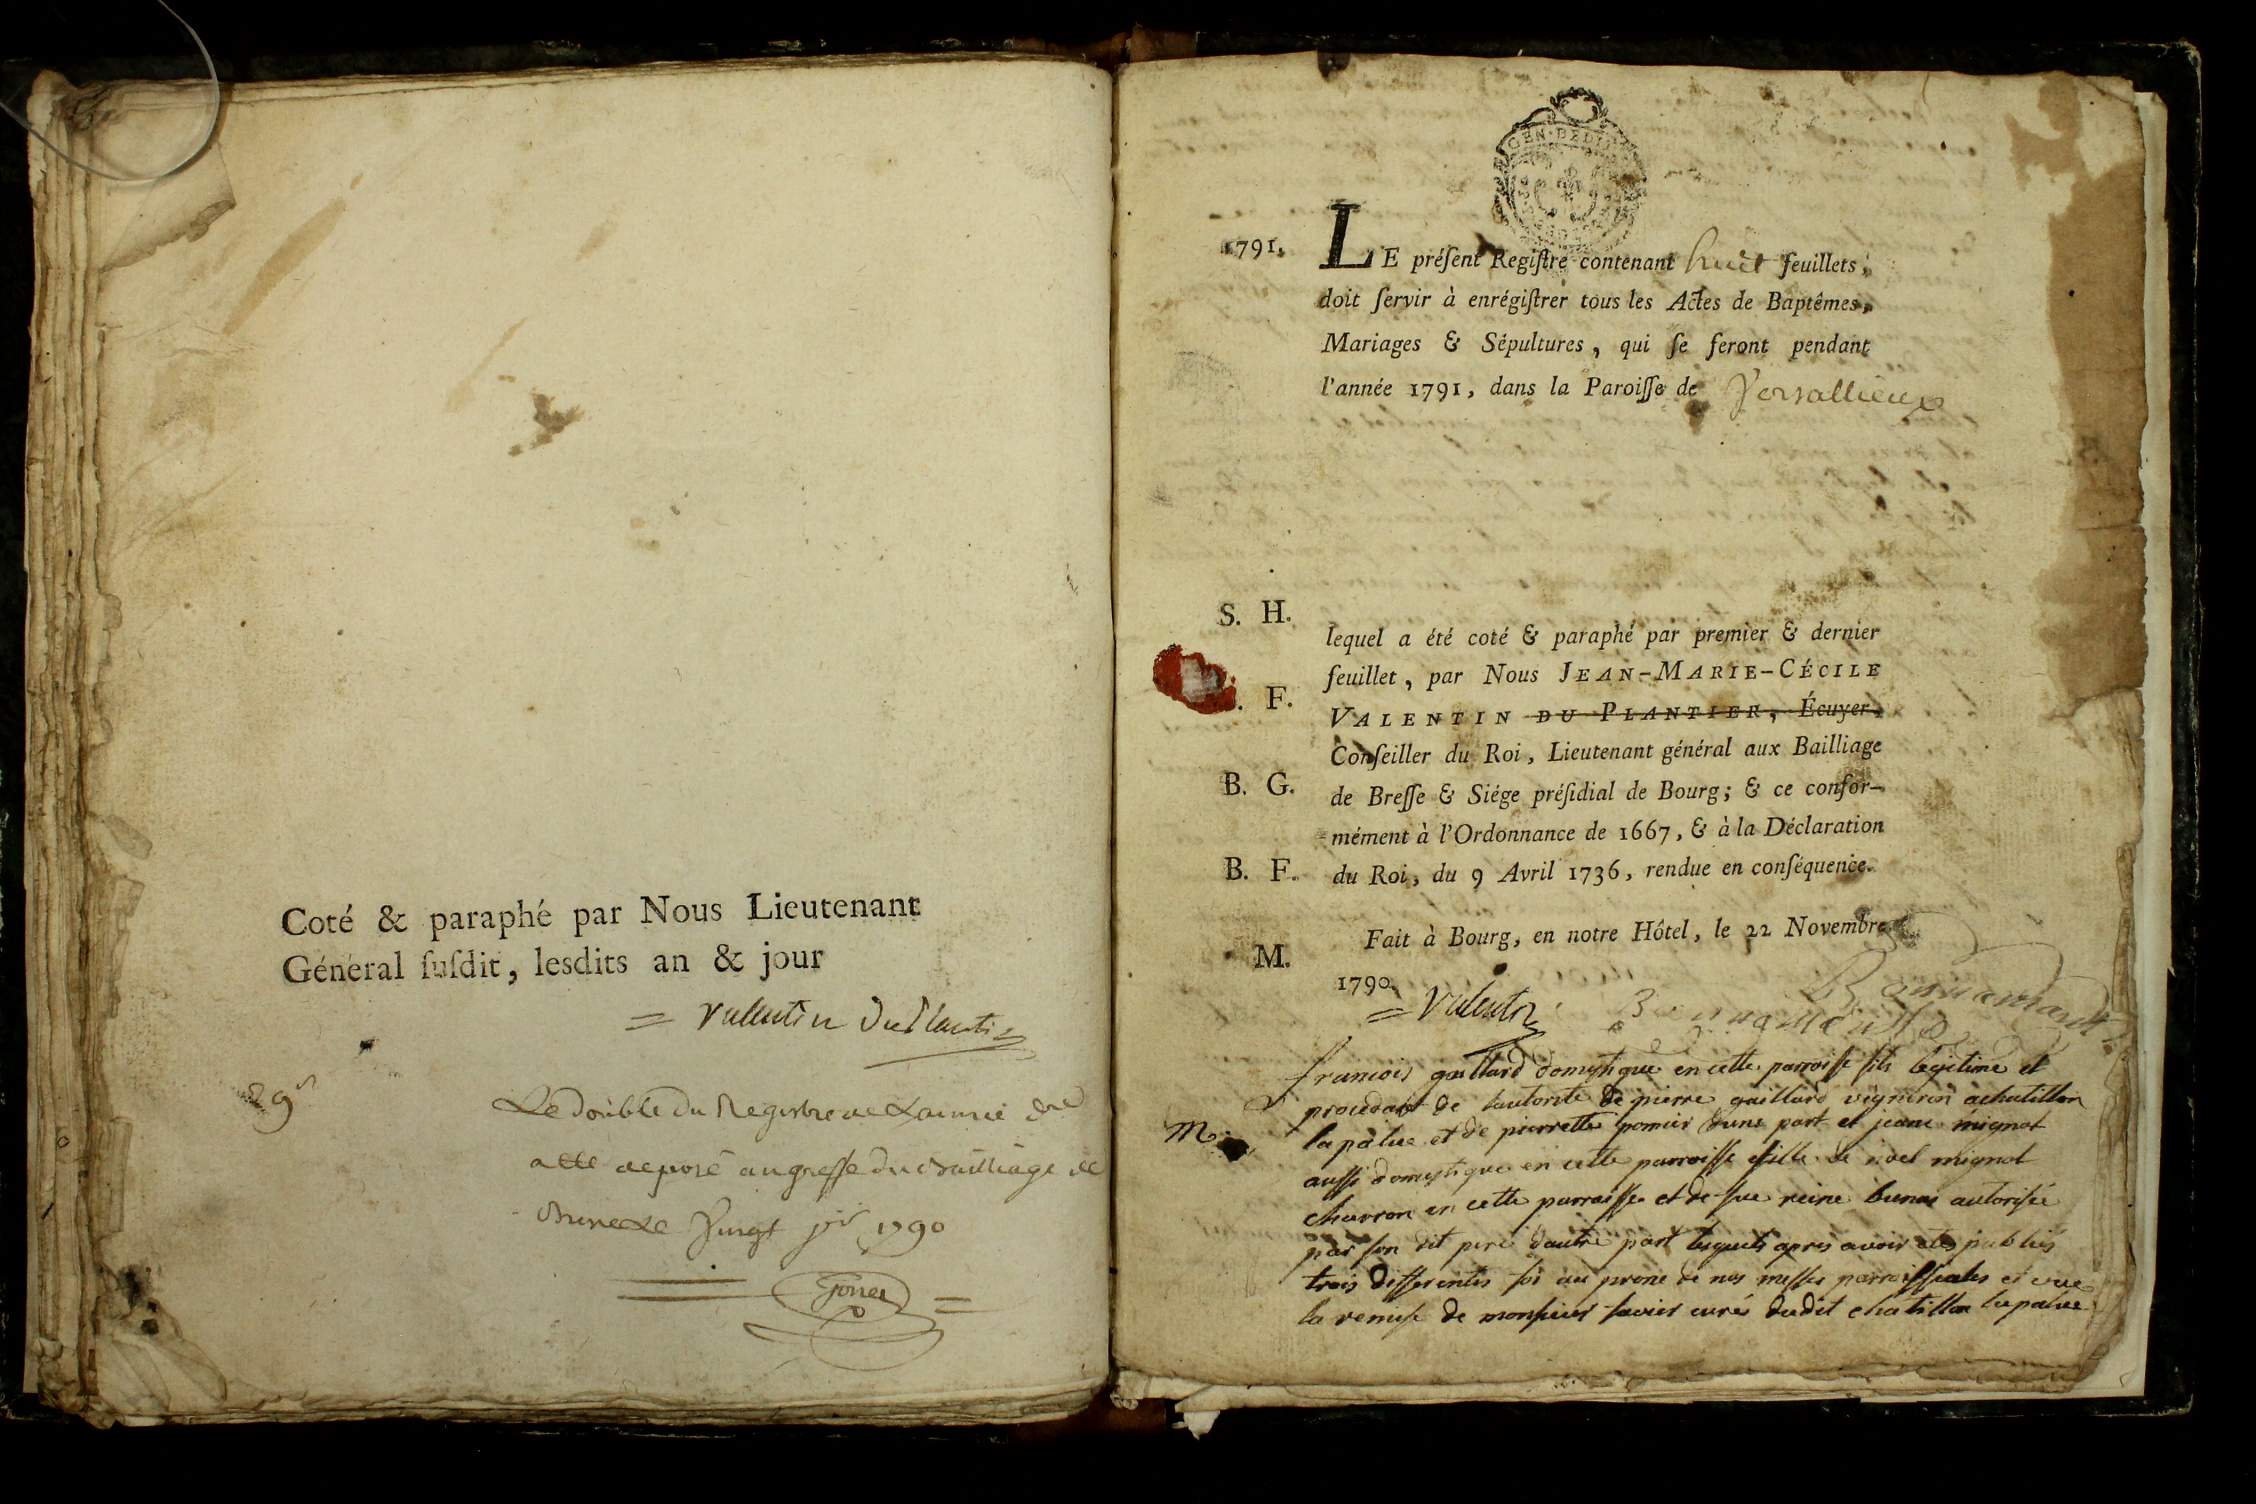 Coté & paraphé par Nous Lieutenant
Général ſuſdit, lesdits an & jour
= Valentin Duplantier
29
Le double du Registre de Lannée
a été deposé au greffe du Bailliage de
Vingt 1790
GEN. DE DI
1791.
LE préſent Regiſtre contenant huit feuillets,
doit ſervir à enrégiſtrer tous les Actes de Baptêmes,
Mariages & Sépultures, qui ſe feront pendant
l'année 1791, dans la Paroiſſe de Versallieux
S. H.
F.
B. G.
B. F.
M.
lequel a été coté & paraphé par premier & dernier
feuillet, par Nous JEAN-MARIE-CÉCILE
VALENTIN DU PLANTIER, Écuyer,
Conſeiller du Roi, Lieutenant général aux Bailliage
de Breſſe & Siége préſidial de Bourg; & ce confor-
mément à l'Ordonnance de 1667, & à la Déclaration
du Roi, du 9 Avril 1736, rendue en conſéquence.
Fait à Bourg, en notre Hôtel, le 22 Novembre
1790.
= Valentin
m.
francois gaillard domestique en cette parroisse fils legitime et
procedant de lautorité de pierre gaillard vigneron a chatillon
la palue et de pierrette pomier dune part et jeane mignot
aussi domestique en cette parroisse fille de noel mignot
charron en cette parroisse et de fue reine autorisée
par son dit pere dautre part lesquels apres avoir etes publiés
trois differentes foi au prone de nos messes parroissiales et vue
la remise de monsieur curé dudit chatillon lapalue